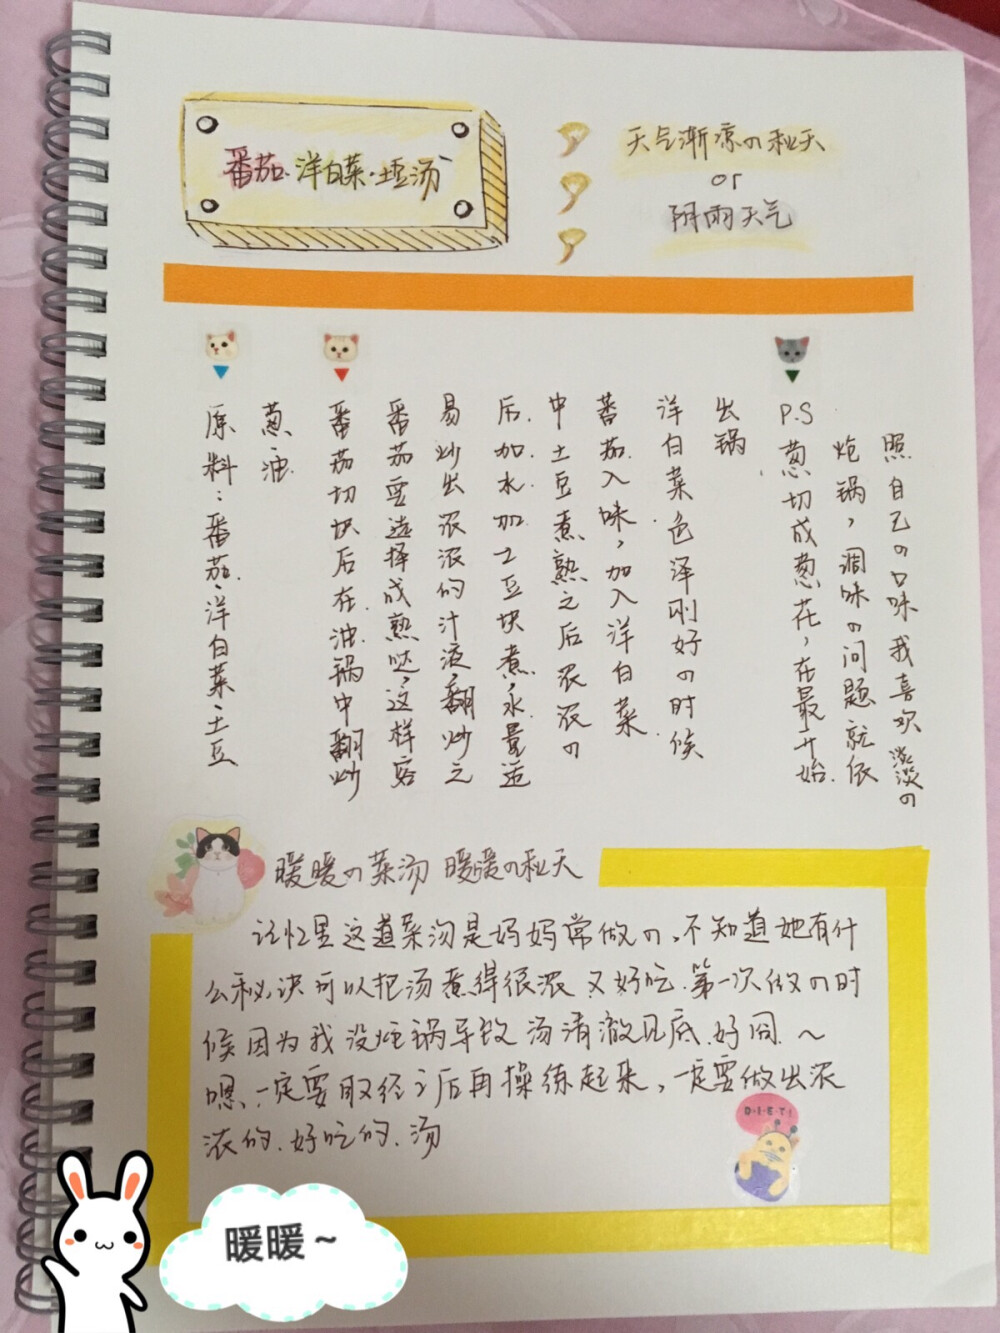 番茄·洋白菜·土豆汤
天气渐凉の秋天
or
阴雨天气
原料：番茄、洋白菜、土豆
葱油
番茄切块后在油锅中翻炒
番茄要选择成熟哒，这样容
易炒出浓浓的汁液，翻炒之
后加水加土豆块煮，水量适
中土豆煮熟之后浓浓の
番茄入味，加入洋白菜
洋白菜色泽刚好の时候
出锅.
P.S 葱切成葱花，在最开始
炝锅，调味の问题就依
照自己の口味 我喜欢淡淡の
暖暖の菜汤 暖暖の秋天
记忆里这道菜汤是妈妈常做の、不知道她有什
么秘诀可以把汤煮得很浓又好吃.第一次做の时
候因为我没炝锅导致汤清澈见底.好囧.～
嗯、一定要取经之后再操练起来，一定要做出浓
浓的、好吃的、汤
D·I·E·T!
暖暖～